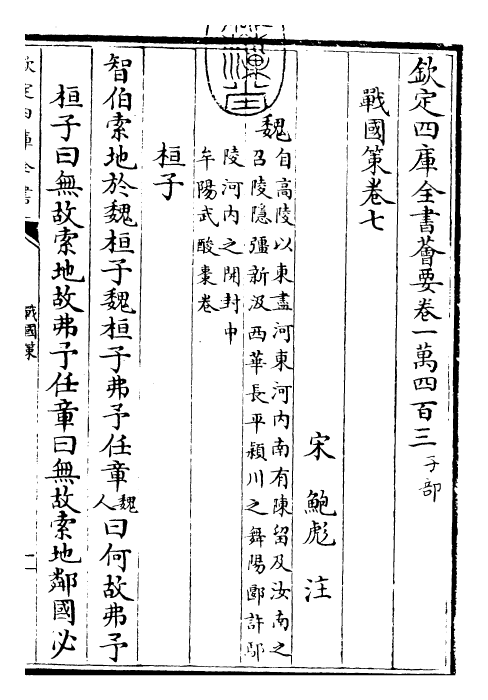 欽定四庫全書薈要卷一萬四百三 子部
戰國策卷七
宋 鮑彪 注
魏 自高陵以東盡河東河內南有陳留及汝南之
召陵隱彊新汲西華長平潁川之舞陽郾許鄢
陵河內之開封中
牟陽武酸棗卷
桓子
智伯索地於魏桓子魏桓子弗予任章魏人曰何故弗予
桓子曰無故索地故弗予任章曰無故索地鄰國必
欽定四庫全書
戰國策